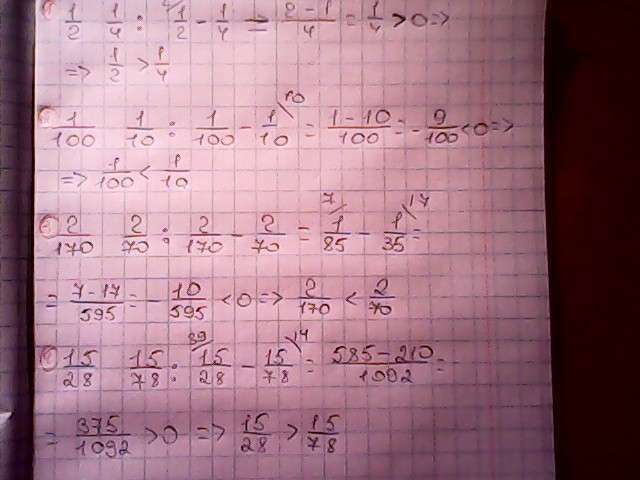 1/2 1/4 : 1/2 - 1/4 = (2-1)/4 = 1/4 > 0 =>
=> 1/2 > 1/4
1/100 1/10 : 1/100 - 1/10 \10 = (1-10)/100 = -9/100 < 0 =>
=> 1/100 < 1/10
2/170 2/70 : 2/170 - 2/70 = 7/ 1/85 - 1/35 \17 =
= (7-17)/595 = -10/595 < 0 => 2/170 < 2/70
15/28 15/78 : 39/ 15/28 - 15/78 \14 = (585-210)/1092 =
= 375/1092 > 0 => 15/28 > 15/78